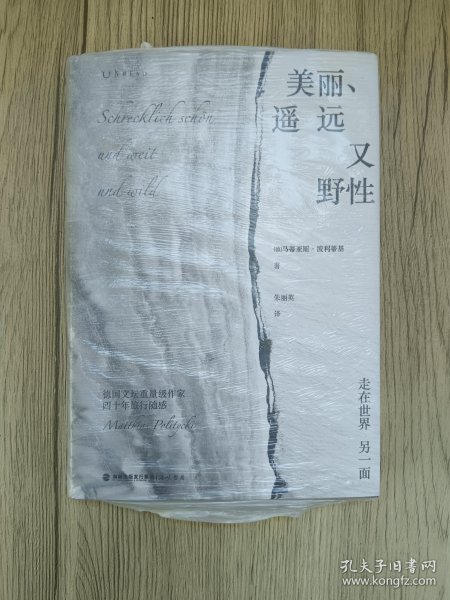 UNREAD
Schrecklich schön
und weit
und wild
美丽、
遥远
又
野性
[德]马蒂亚斯·波利蒂基
著
朱丽英
译
走在世界 另一面
德国文坛重量级作家
四十年旅行随感
Matthias Politycki
海峡出版发行集团
孔夫子旧书网
www.kongfz.com